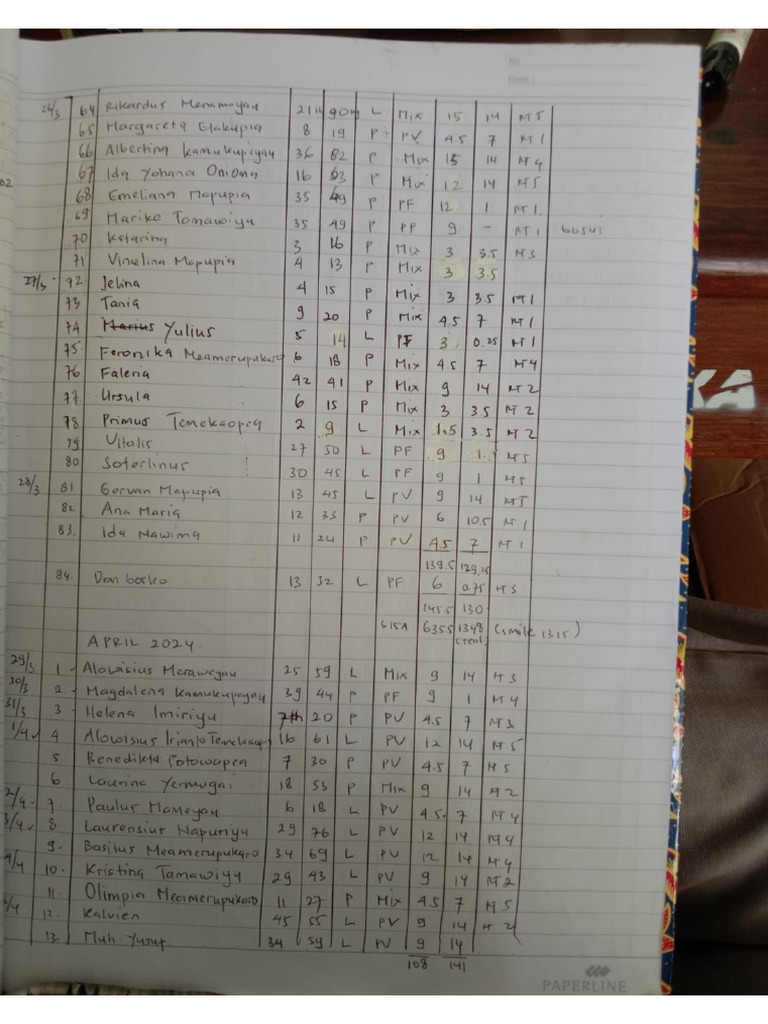 No
Date :
02
26/3 64 Rikardus Menamoyau 21th 90kg L Mix 15 14 MT5
65 Margareta Etakupia 8 19 P PV 4.5 7 MT1
66 Albertina Kamukupeyau 36 82 P Mix 15 14 MT4
67 Ida Yohana Onioma 16 63 P Mix 12 14 MT5
68 Emeliana Mapupia 35 49 P PF 12 1 MT1.
69 Marike Tomawiyu 35 49 P PF 9 - MT1 busui
70 Katarina 3 16 P Mix 3 3.5 MT3
71 Vincelina Mapupia 4 13 P Mix 3 3.5
27/3 72 Jelina 4 15 P Mix 3 3.5 MT1
73 Tania 9 20 P Mix 4.5 7 MT1
74 Marius Yulius 5 14 L PF 3 0.25 MT1
75 Feronika Meamerupukaro 6 18 P Mix 4.5 7 MT4
76 Faleria 42 41 P Mix 9 14 MT2
77 Ursula 6 15 P Mix 3 3.5 MT2
78 Primus Temekaopea 2 9 L Mix 1.5 3.5 MT2
79 Vitalis 27 50 L PF 9 1. MT5
80 Soterlinus 30 45 L PF 9 1 MT5
28/3 81 Gervan Mapupia 13 45 L PV 9 14 MT5
82. Ana Maria 12 33 P PV 6 10.5 MT1
83. Ida Nawima 11 24 P PV 4.5 7 MT1
139.5 129.25
84. Don bosko 13 32 L PF 6 0.75 MT3
145.5 130
SISA 6355 1348 (smile 1315)
(real)
APRIL 2024.
29/3 1 - Aloisius Meraweyau 25 59 L Mix 9 14 MT3
30/3 2 - Magdalena Kamukupeyau 39 44 P PF 9 1 MT4
31/3 3 - Helena Imiriyu 7th 20 P PV 4.5 7 MT3
1/4 4 Aloisius Irianto Temekaopea 16 61 L PV 12 14 MT5
5 Benedikta Potowapea 7 30 P PV 4.5 7 MT5
6 Laurina Yermugai 18 53 P Mix 9 14 MT2
2/4 - 7. Paulus Mameyau 6 18 L PV 4.5 7 MT4
3/4 8. Laurensius Napuriyu 29 76 L PV 12 14 MT4
9. Basilus Meamerupukaro 34 69 L PV 12 14 MT4
4/4 10. Kristina Tamawiyu 29 43 L PV 9 14 MT2
11. Olimpia Meamerupukaro 11 27 P Mix 4.5 7 MT5
12. Kalvien 45 55 L PV 9 14 MT2
13. Muh. Yusuf 34 59 L PV 9 14
108 141
PAPERLINE